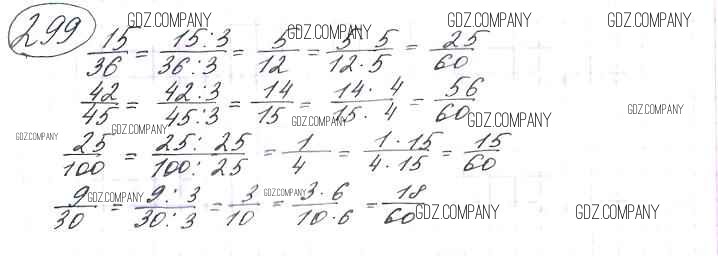 299 GDZ.COMPANY GDZ.COMPANY GDZ.COMPANY GDZ.COMPANY
15/36 = 15:3/36:3 = 5/12 = 5·5/12·5 = 25/60
42/45 = 42:3/45:3 = 14/15 = 14·4/15·4 = 56/60
GDZ.COMPANY GDZ.COMPANY GDZ.COMPANY GDZ.COMPANY GDZ.COMPANY
25/100 = 25:25/100:25 = 1/4 = 1·15/4·15 = 15/60
9/30 = 9:3/30:3 = 3/10 = 3·6/10·6 = 18/60
GDZ.COMPANY GDZ.COMPANY GDZ.COMPANY GDZ.COMPANY